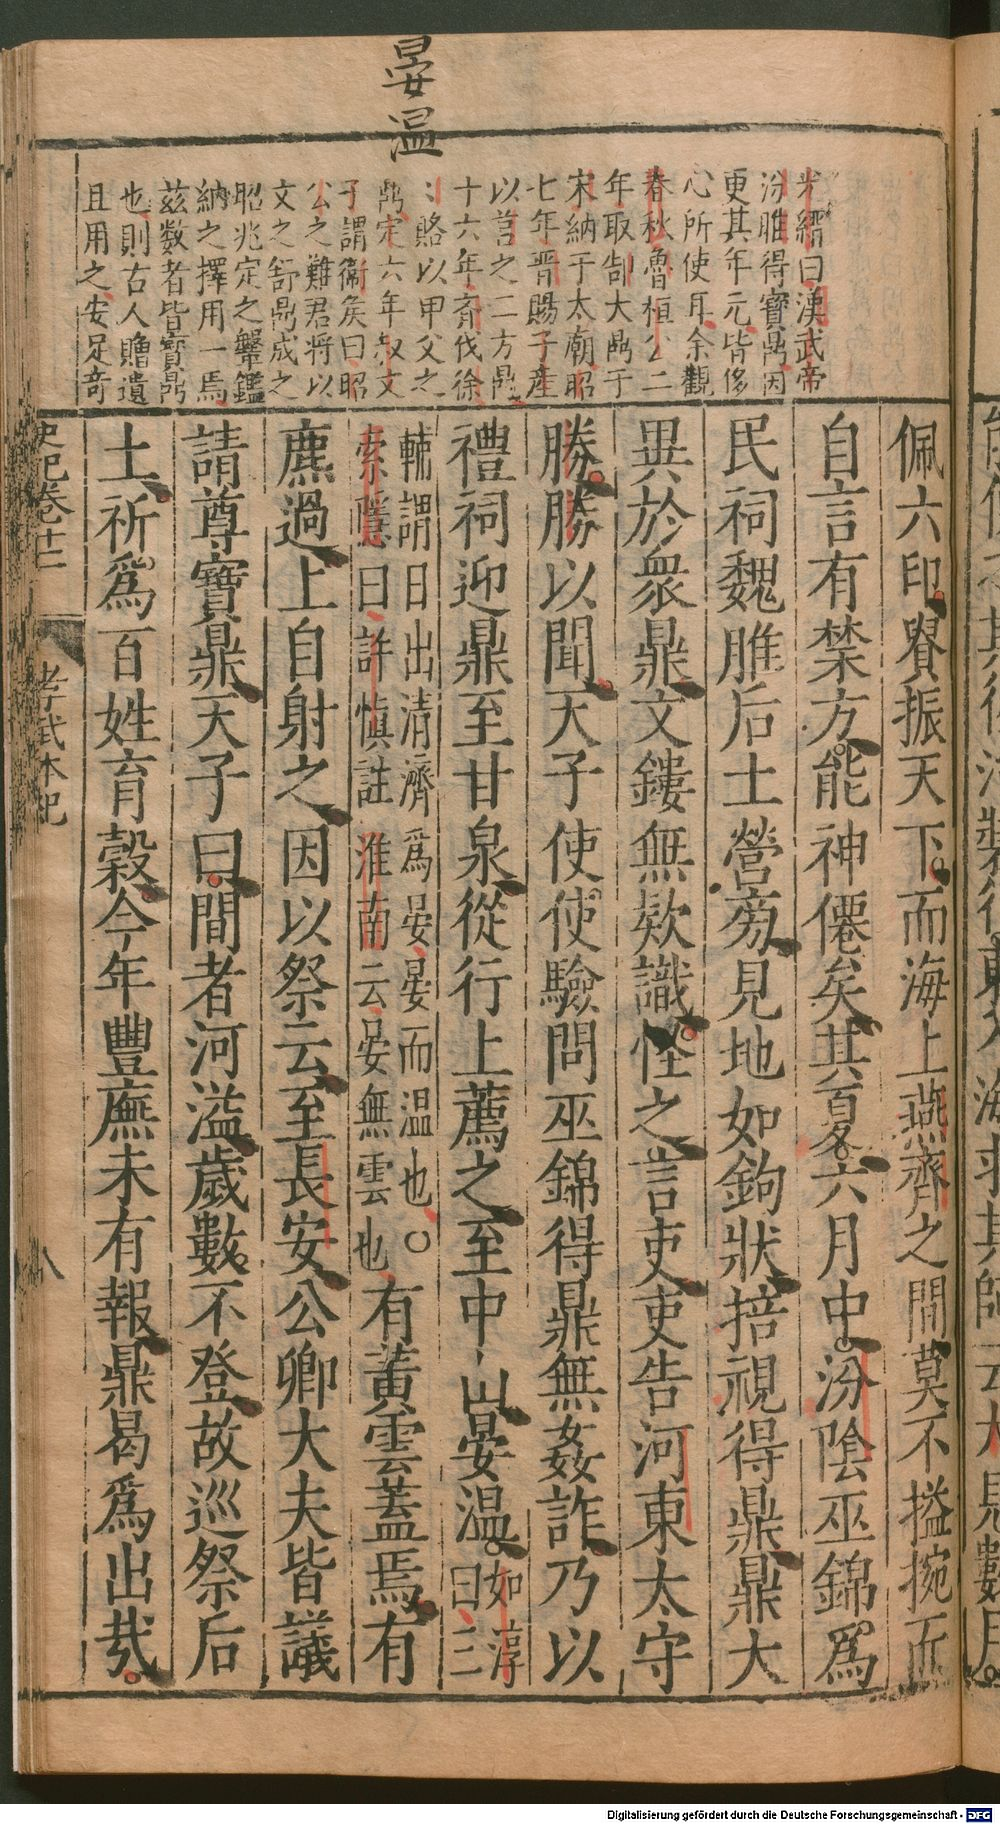 晏温
光縉曰漢武帝
汾脽得寶鼎因
更其年元皆侈
心所使耳余觀
春秋魯桓公二
年取郜大鼎于
宋納于太廟昭
七年晋賜子產
以莒之二方鼎
十六年齊伐徐
賂以甲父之
鼎定六年叔文
子謂衛侯曰昭
公之難君將以
文之舒鼎成之
昭兆定之鞶鑑
納之擇用一焉
茲数者皆寶鼎
也則古人贈遺
且用之安足奇
佩六印貴振天下而海上燕齊之間莫不搤捥而
自言有禁方能神僊矣其夏六月中汾陰巫錦爲
民祠魏脽后土營旁見地如鉤狀掊視得鼎鼎大
異於衆鼎文鏤無欵識怪之言吏吏告河東太守
勝勝以聞天子使使驗問巫錦得鼎無姦詐乃以
禮祠迎鼎至甘泉從行上薦之至中山晏溫如淳
曰三
輔謂日出清濟爲晏晏而温也〇
索隱曰許慎註淮南云晏無雲也有黄雲蓋焉有
麃過上自射之因以祭云至長安公卿大夫皆議
請尊寶鼎天子曰間者河溢歲數不登故巡祭后
土祈爲百姓育穀今年豐廡未有報鼎曷爲出哉
史記卷十二 孝武本紀 八
Digitalisierung gefördert durch die Deutsche Forschungsgemeinschaft - DFG